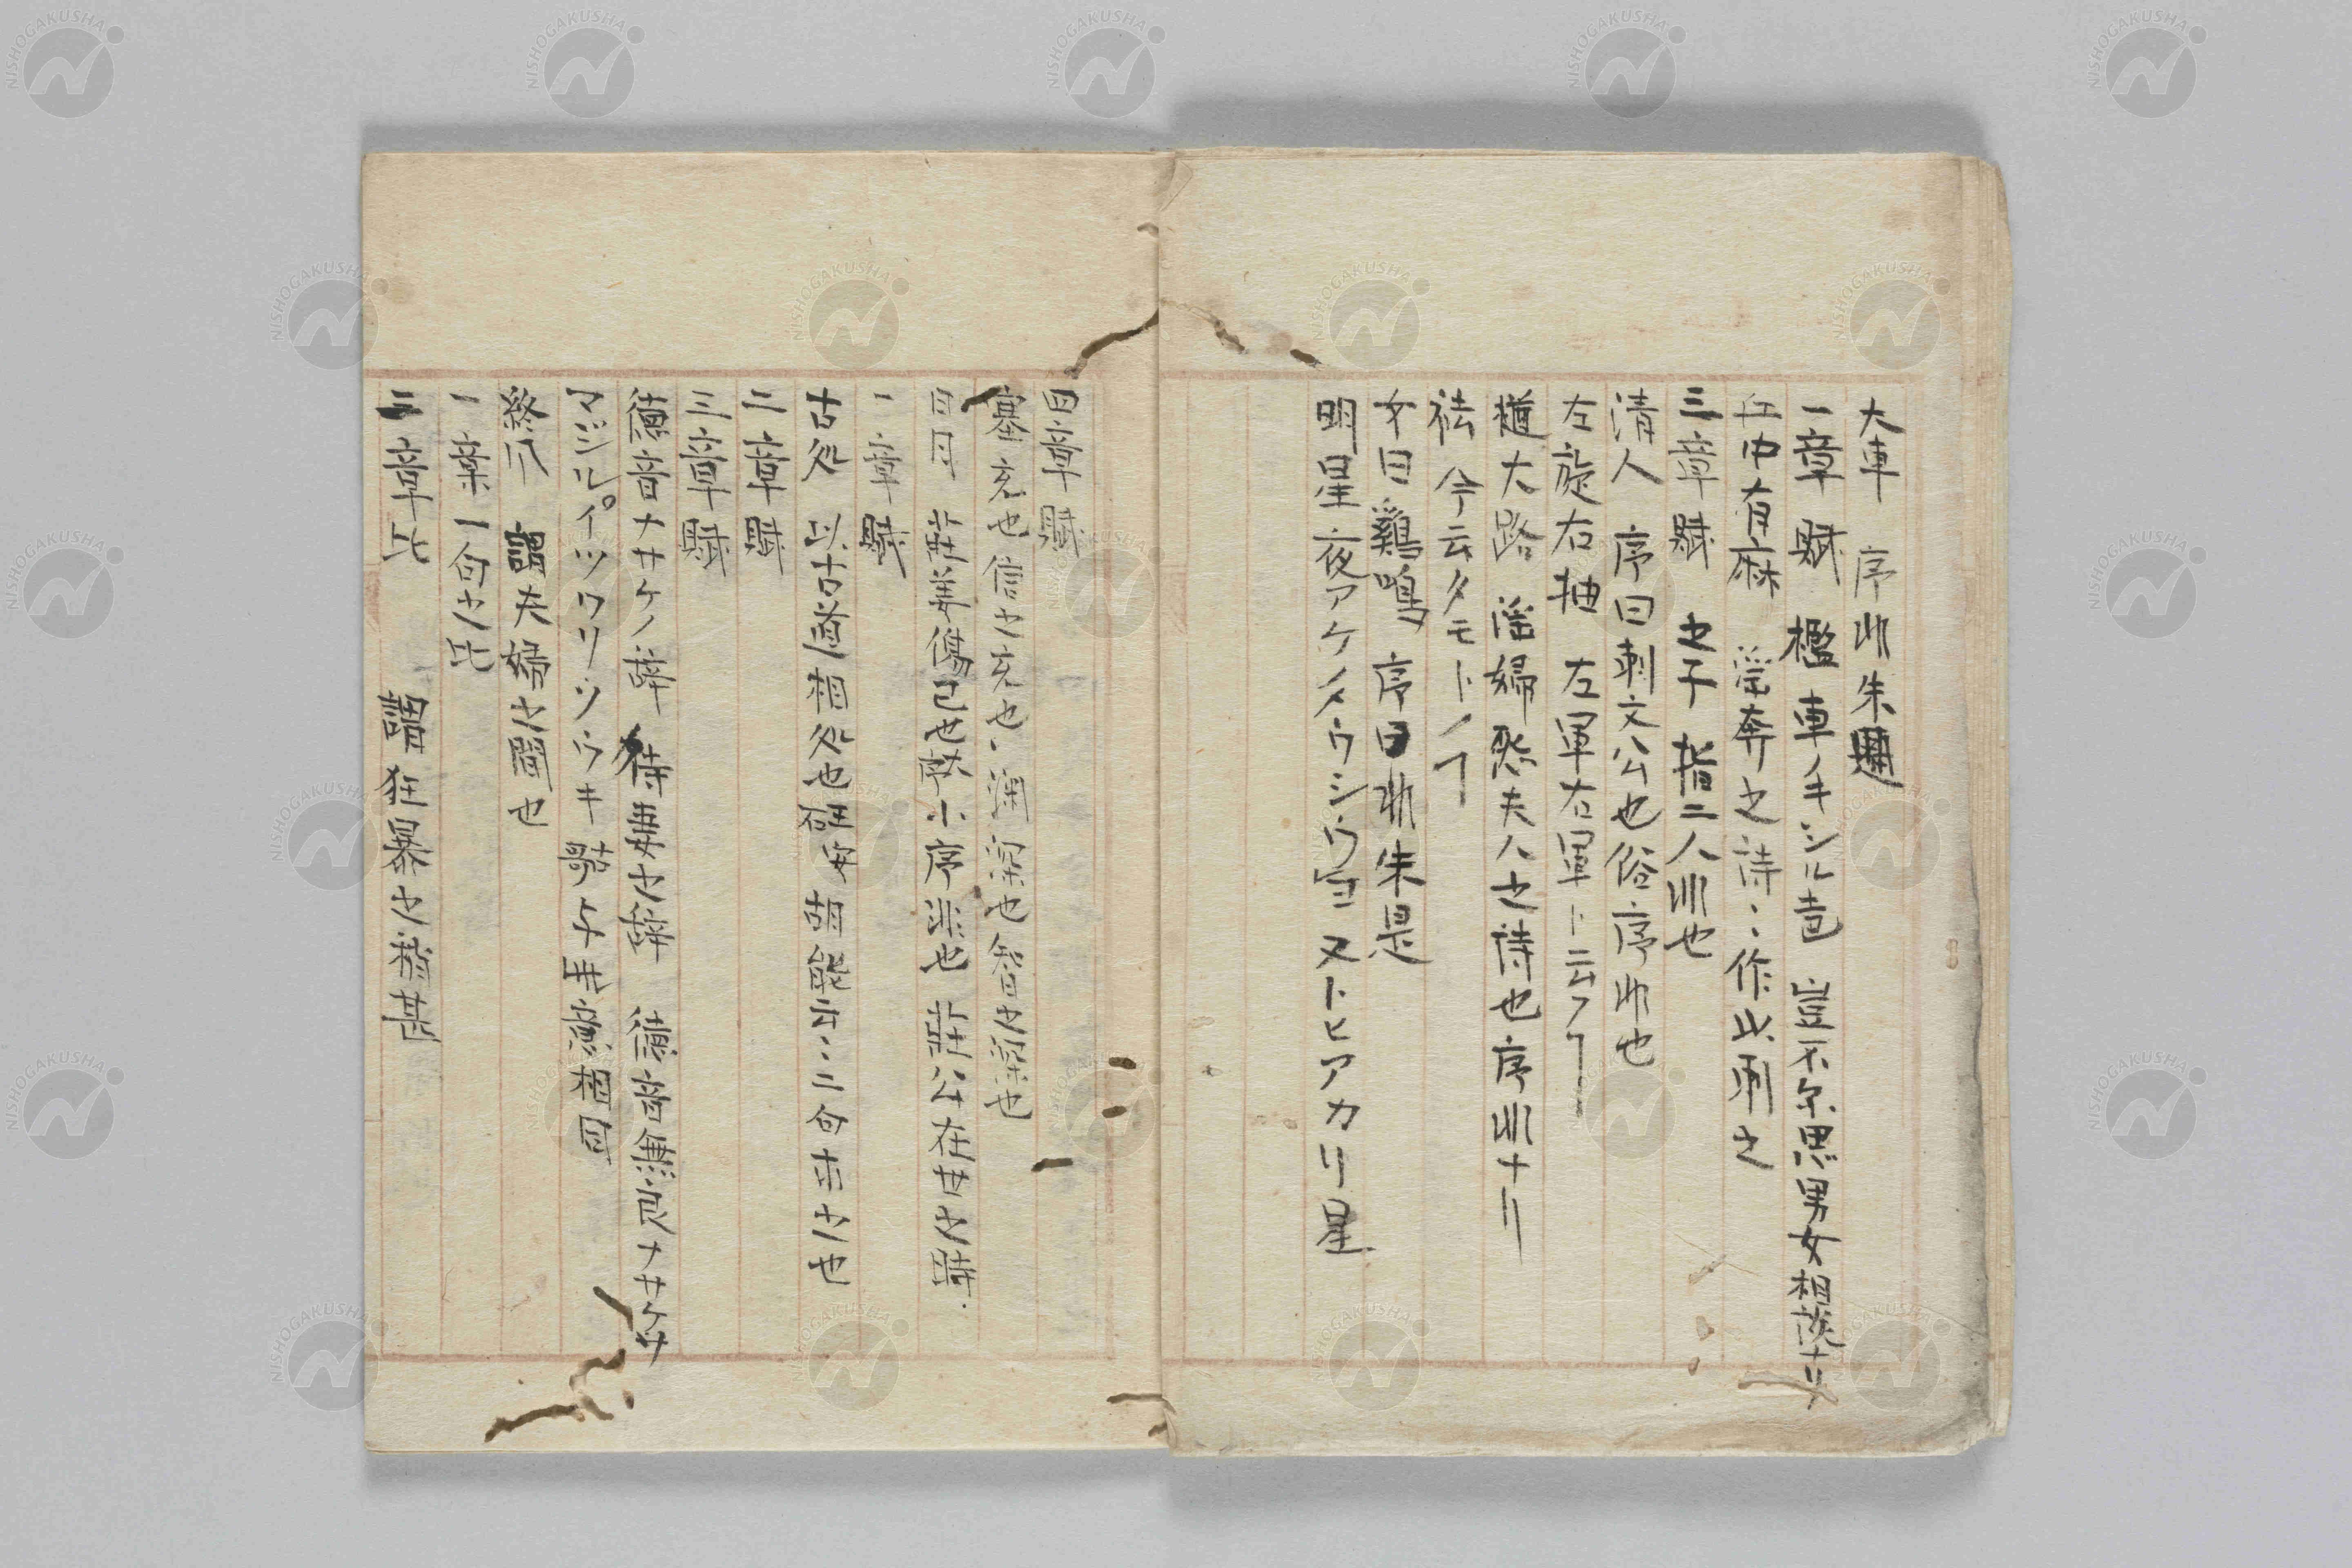 大車　序非朱選
一章　賦　檻　車ノキシル音　豈不尓思男女相談ナリ
丘中有麻　淫奔之詩・作此刑之
三章賦　之子　指二人非也
清人　序曰刺文公也俗序非也
左旋右抽　左軍右軍ト云フヿ
遵大路　淫婦怒夫人之詩也序非ナリ
袪　今云タモトノヿ
女曰鷄鳴　序曰非朱是
明星夜アケノメウシウヨ又トヒアカリ星
四章賦
塞充也信之充也・淵深也智之深也
日月　荘姜傷己也朕小序非也　荘公在世之詩・
一章賦
古処　以古道相処也 胡能定・二句末之也
二章賦
三章賦
徳音ナサケノ辞　待妻之辞　徳音無良ナサケナ
マジル。イツワリツウキ 意相同
終風　謂夫婦之間也
一章一句之比
二章比　謂狂暴之稍甚